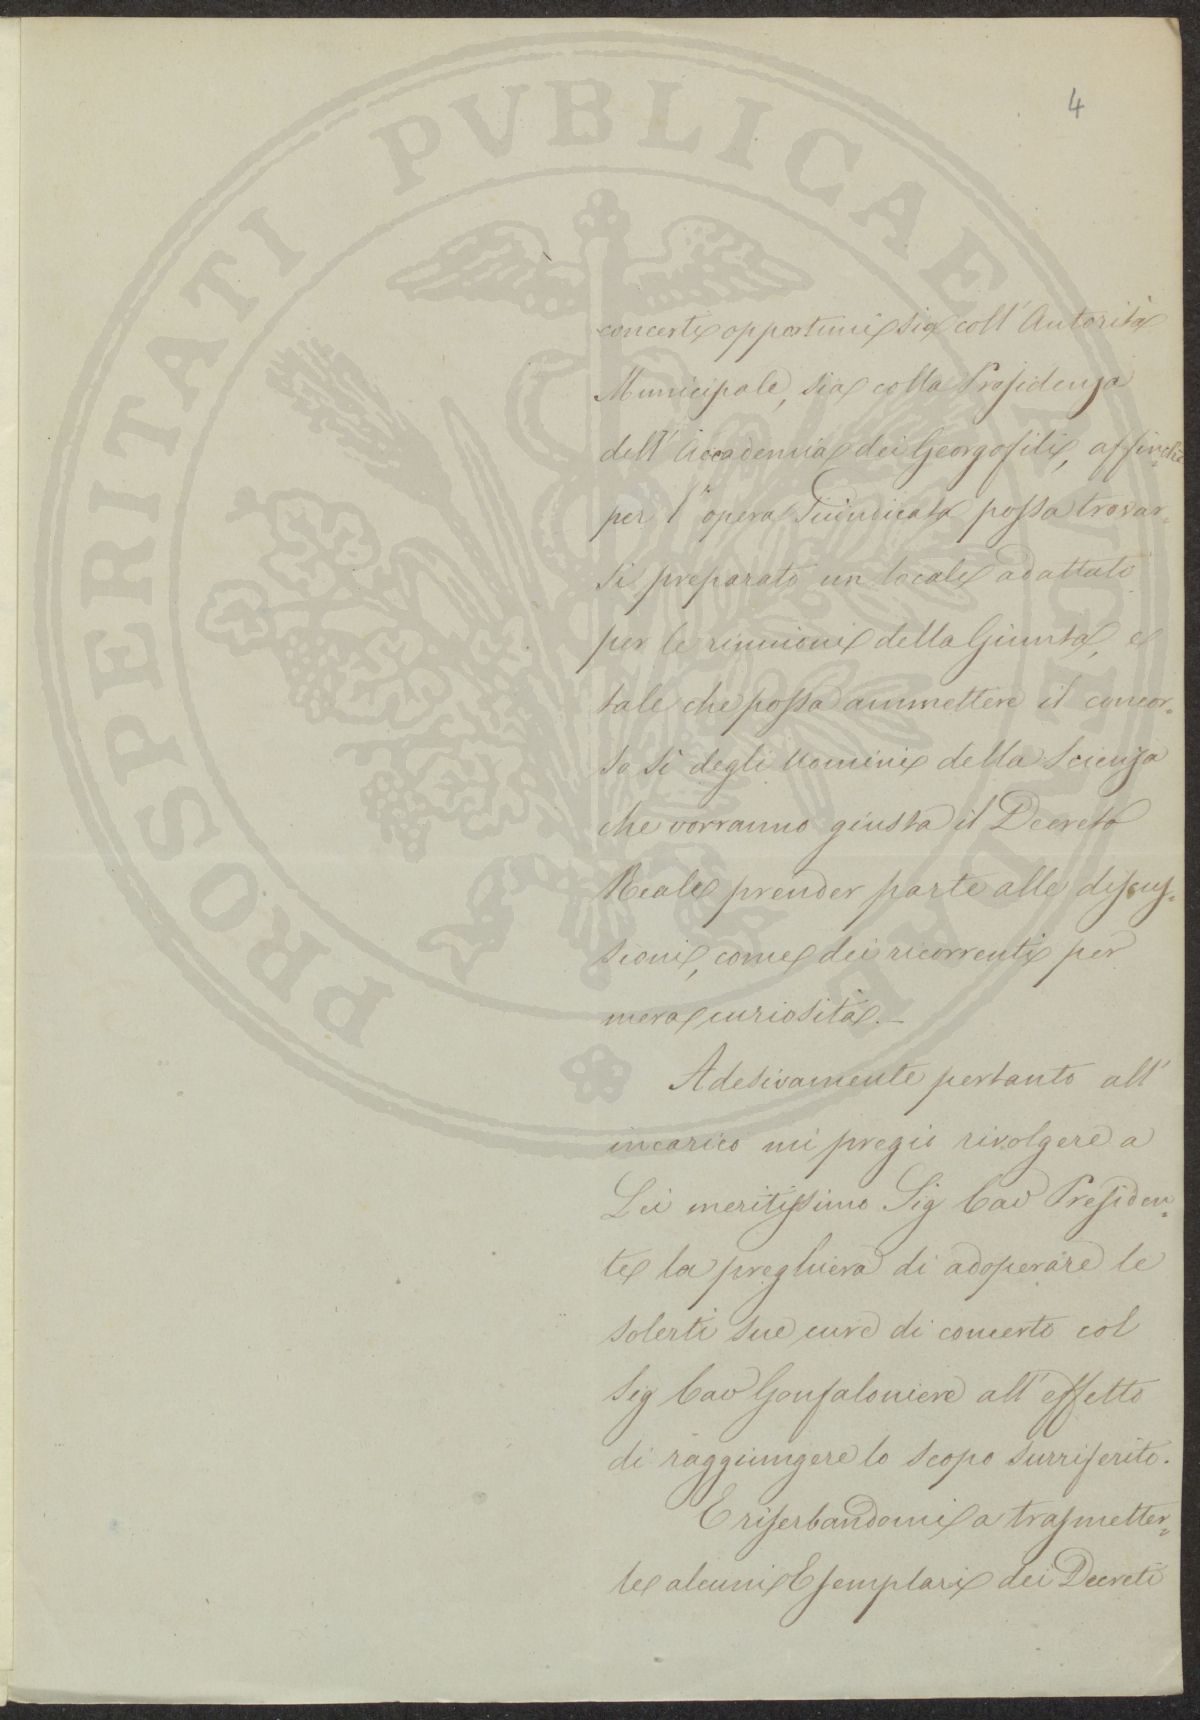 4
PROSPERITATI PVBLICAE AVGENDAE
concerti opportuni sia coll' Autorità
Municipale, sia colla Presidenza
dell' Accademia dei Georgofili, affinchè
per l' opera suindicata possa trovar=
si preparato un locale adattato
per le riunioni della Giunta, e
tale che possa ammettere il concor=
so sì degli Uomini della Scienza
che vorranno giusta il Decreto
Reale prender parte alle discus=
sioni, come dei ricorrenti per
mera curiosità.—
Adesivamente pertanto all'
incarico mi pregio rivolgere a
Lei meritissimo Sig Cav Presiden=
te la preghiera di adoperare le
solerti sue cure di concerto col
Sig Cav Gonfaloniere all' effetto
di raggiungere lo scopo surriferito.
E riserbandomi a trasmetter=
le alcuni Esemplari dei Decreti